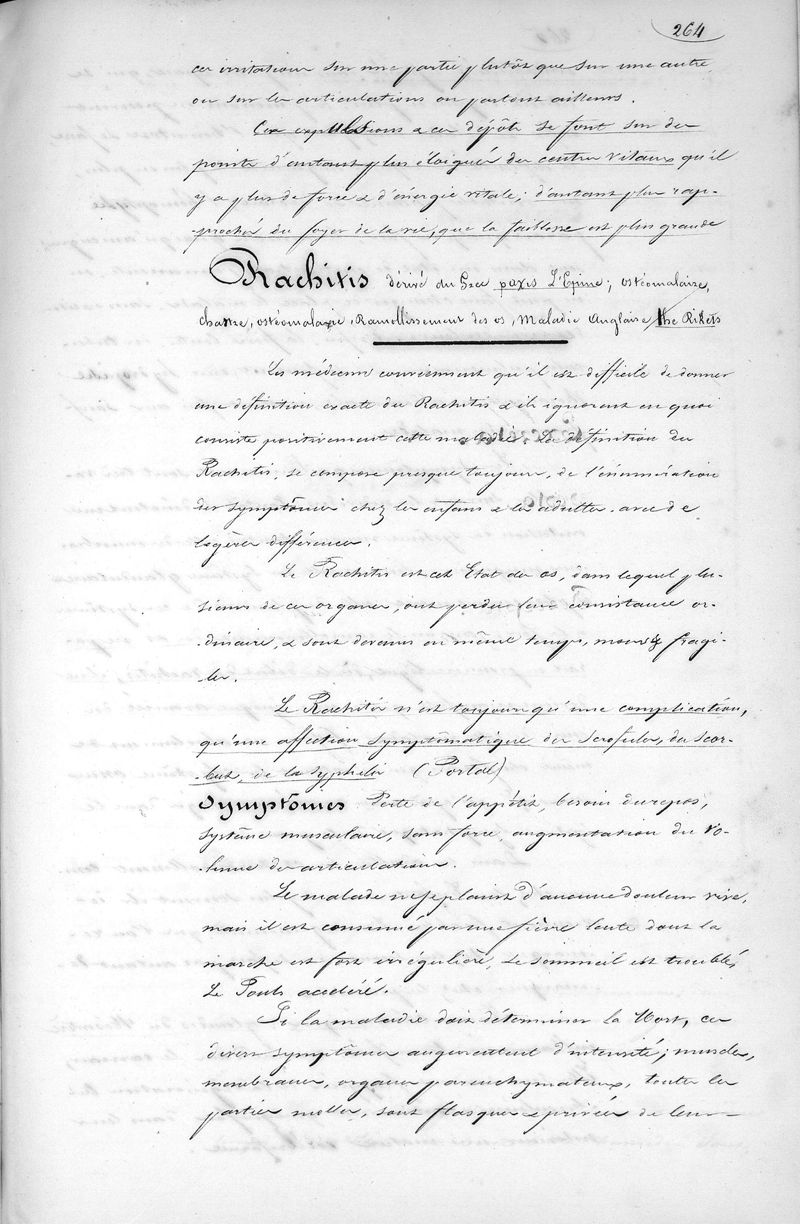 264
ces irritations sur une partie plutôt que sur une autre,
ou sur les articulations ou partout ailleurs.
Ces expulsions & ces dépôts se font sur des
points d'autant plus éloignés des centres vitaux qu'il
y a plus de force & d'énergie vitale; d'autant plus rap-
-prochés du foyer de la vie, que la faiblesse est plus grande
Rachitis dérivé du Grec ραχις L'Epine; ostéomalaire,
chartre, ostéomalaxie, Ramollissement des os, Maladie Anglaise the Rikets
Les médecins conviennent qu'il est difficile de donner
une définition exacte du Rachitis & ils ignorent en quoi
consiste positivement cette maladie. La définition du
Rachitis, se compose presque toujours, de l'énumération
des symptômes chez les enfans & les adultes avec de
légères différences.
Le Rachitis est cet Etat des os, dans lequel plu-
sieurs de ces organes, ont perdu leur consistance or-
-dinaire, & sont devenus en même temps, mous & fragi-
-les.
Le Rachitis n'est toujours qu'une complication,
qu'une affection symptômatique des Scrofules, du Scor-
-but, de la Syphilis (Portal)
Symptômes Perte de l'appétit, besoin du repos,
système musculaire, sans force, augmentation du vo-
-lume des articulations.
Le malade ne se plaint d'aucune douleur vive,
mais il est consumé par une fièvre lente dont la
marche est fort irrégulière, Le sommeil est troublé,
Le Pouls accéléré.
Si la maladie doit déterminer la Mort, ces
divers symptômes augmentent d'intensité; muscles,
membranes, organes parenchymateux, toutes les
parties molles, sont flasques & privées de leur